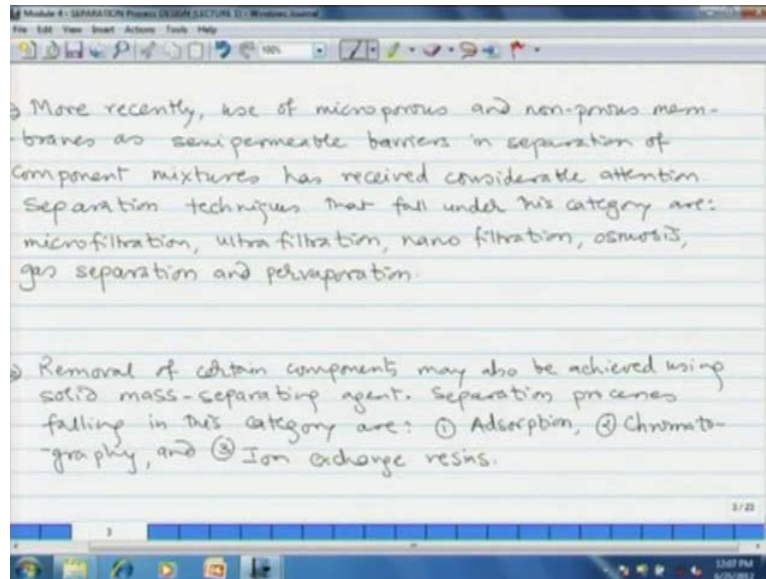 Module 4 - SEPARATION Process DESIGN (LECTURE 1) - Windows Journal
File Edit View Insert Actions Tools Help
100%
More recently, use of microporous and non-porous mem-
-branes as semipermeable barriers in separation of
component mixtures has received considerable attention
Separation techniques that fall under this category are:
microfiltration, ultra filtration, nano filtration, osmosis,
gas separation and pervaporation.
Removal of certain components may also be achieved using
solid mass-separating agent. Separation processes
falling in this category are: ① Adsorption, ② Chromato-
-graphy, and ③ Ion exchange resins.
3/22
3
12:07 PM
6/25/2012